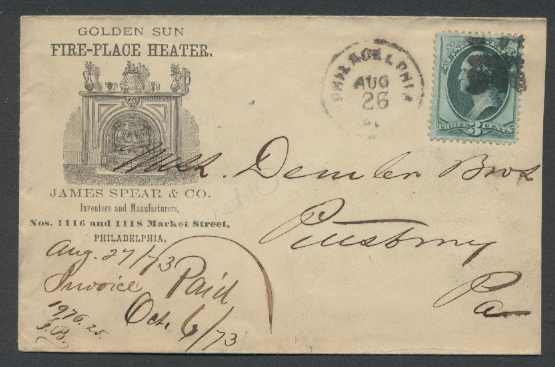 GOLDEN SUN
FIRE-PLACE HEATER.
JAMES SPEAR & CO.
Inventors and Manufacturers,
Nos. 1116 and 1118 Market Street,
PHILADELPHIA.
PHILADELPHIA
AUG
26
THREE 3 CENTS
Bros
Pittsburg
Pa
Aug. 27/73
Invoice Paid
Oct. 6/73
1976.25